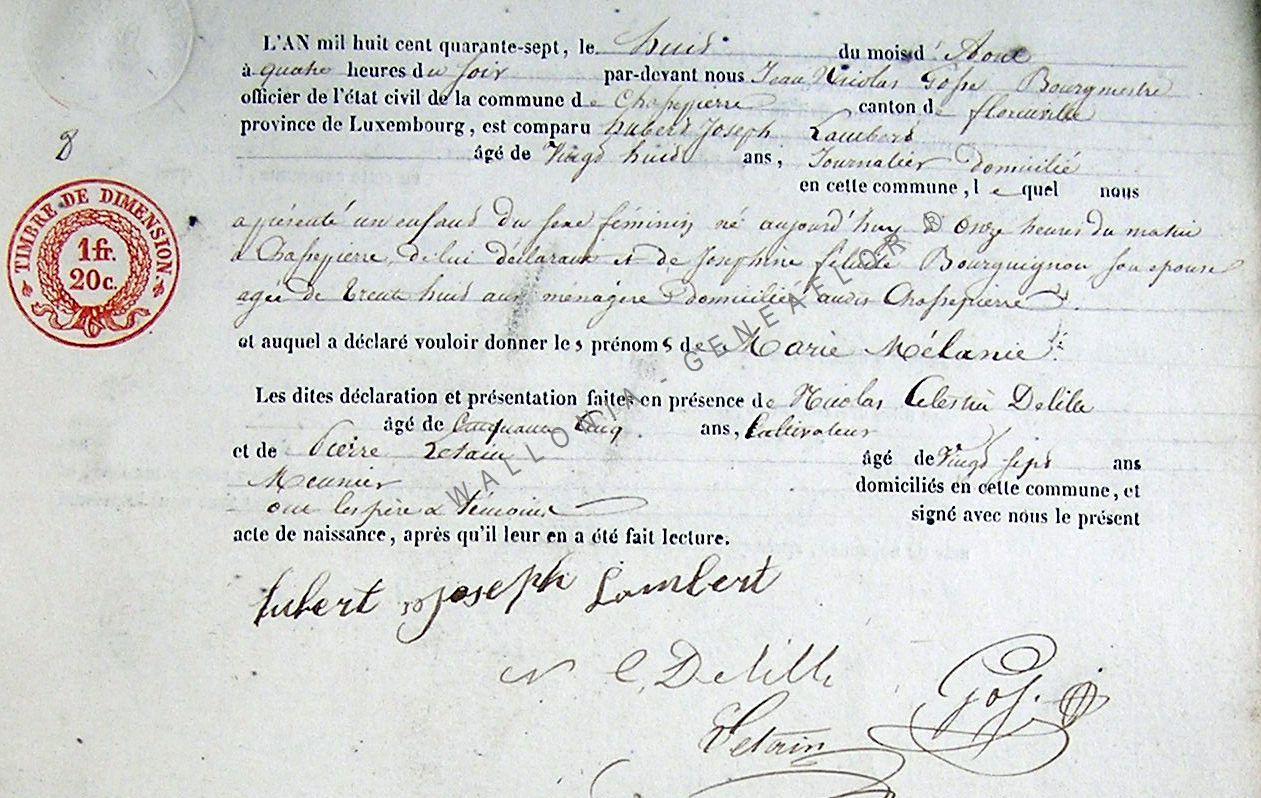 L'AN mil huit cent quarante-sept, le huit du mois d' Aout
à quatre heures du soir par-devant nous Jean Nicolas Gosse Bourgmestre
officier de l'état civil de la commune de Chassepierre canton de florenville
province de Luxembourg, est comparu hubert Joseph Lambert
8
âgé de Vingt huit ans, Journalier domicilié
en cette commune, l e quel nous
a présenté un enfant du sexe féminin né aujourd'huy à Onze heures du matin
à Chassepierre, de lui déclarant et de Josephine félicité Bourguignon son epouse
agée de trente huit ans ménagère domiciliée audit Chassepierre
et auquel a déclaré vouloir donner les prénoms de Marie Mélanie
Les dites déclaration et présentation faites en présence de Nicolas Celestin Delille
âgé de Cinquante cinq ans, Cultivateur
et de Pierre Letain âgé de Vingt sept ans
Meunier domiciliés en cette commune, et
ont les père & témoins signé avec nous le présent
acte de naissance, après qu'il leur en a été fait lecture.
hubert joseph Lambert
n C Delille
Gosse
Letain
TIMBRE DE DIMENSION.
1 fr.
20 c.
WALLONIA - GENEALOR ®